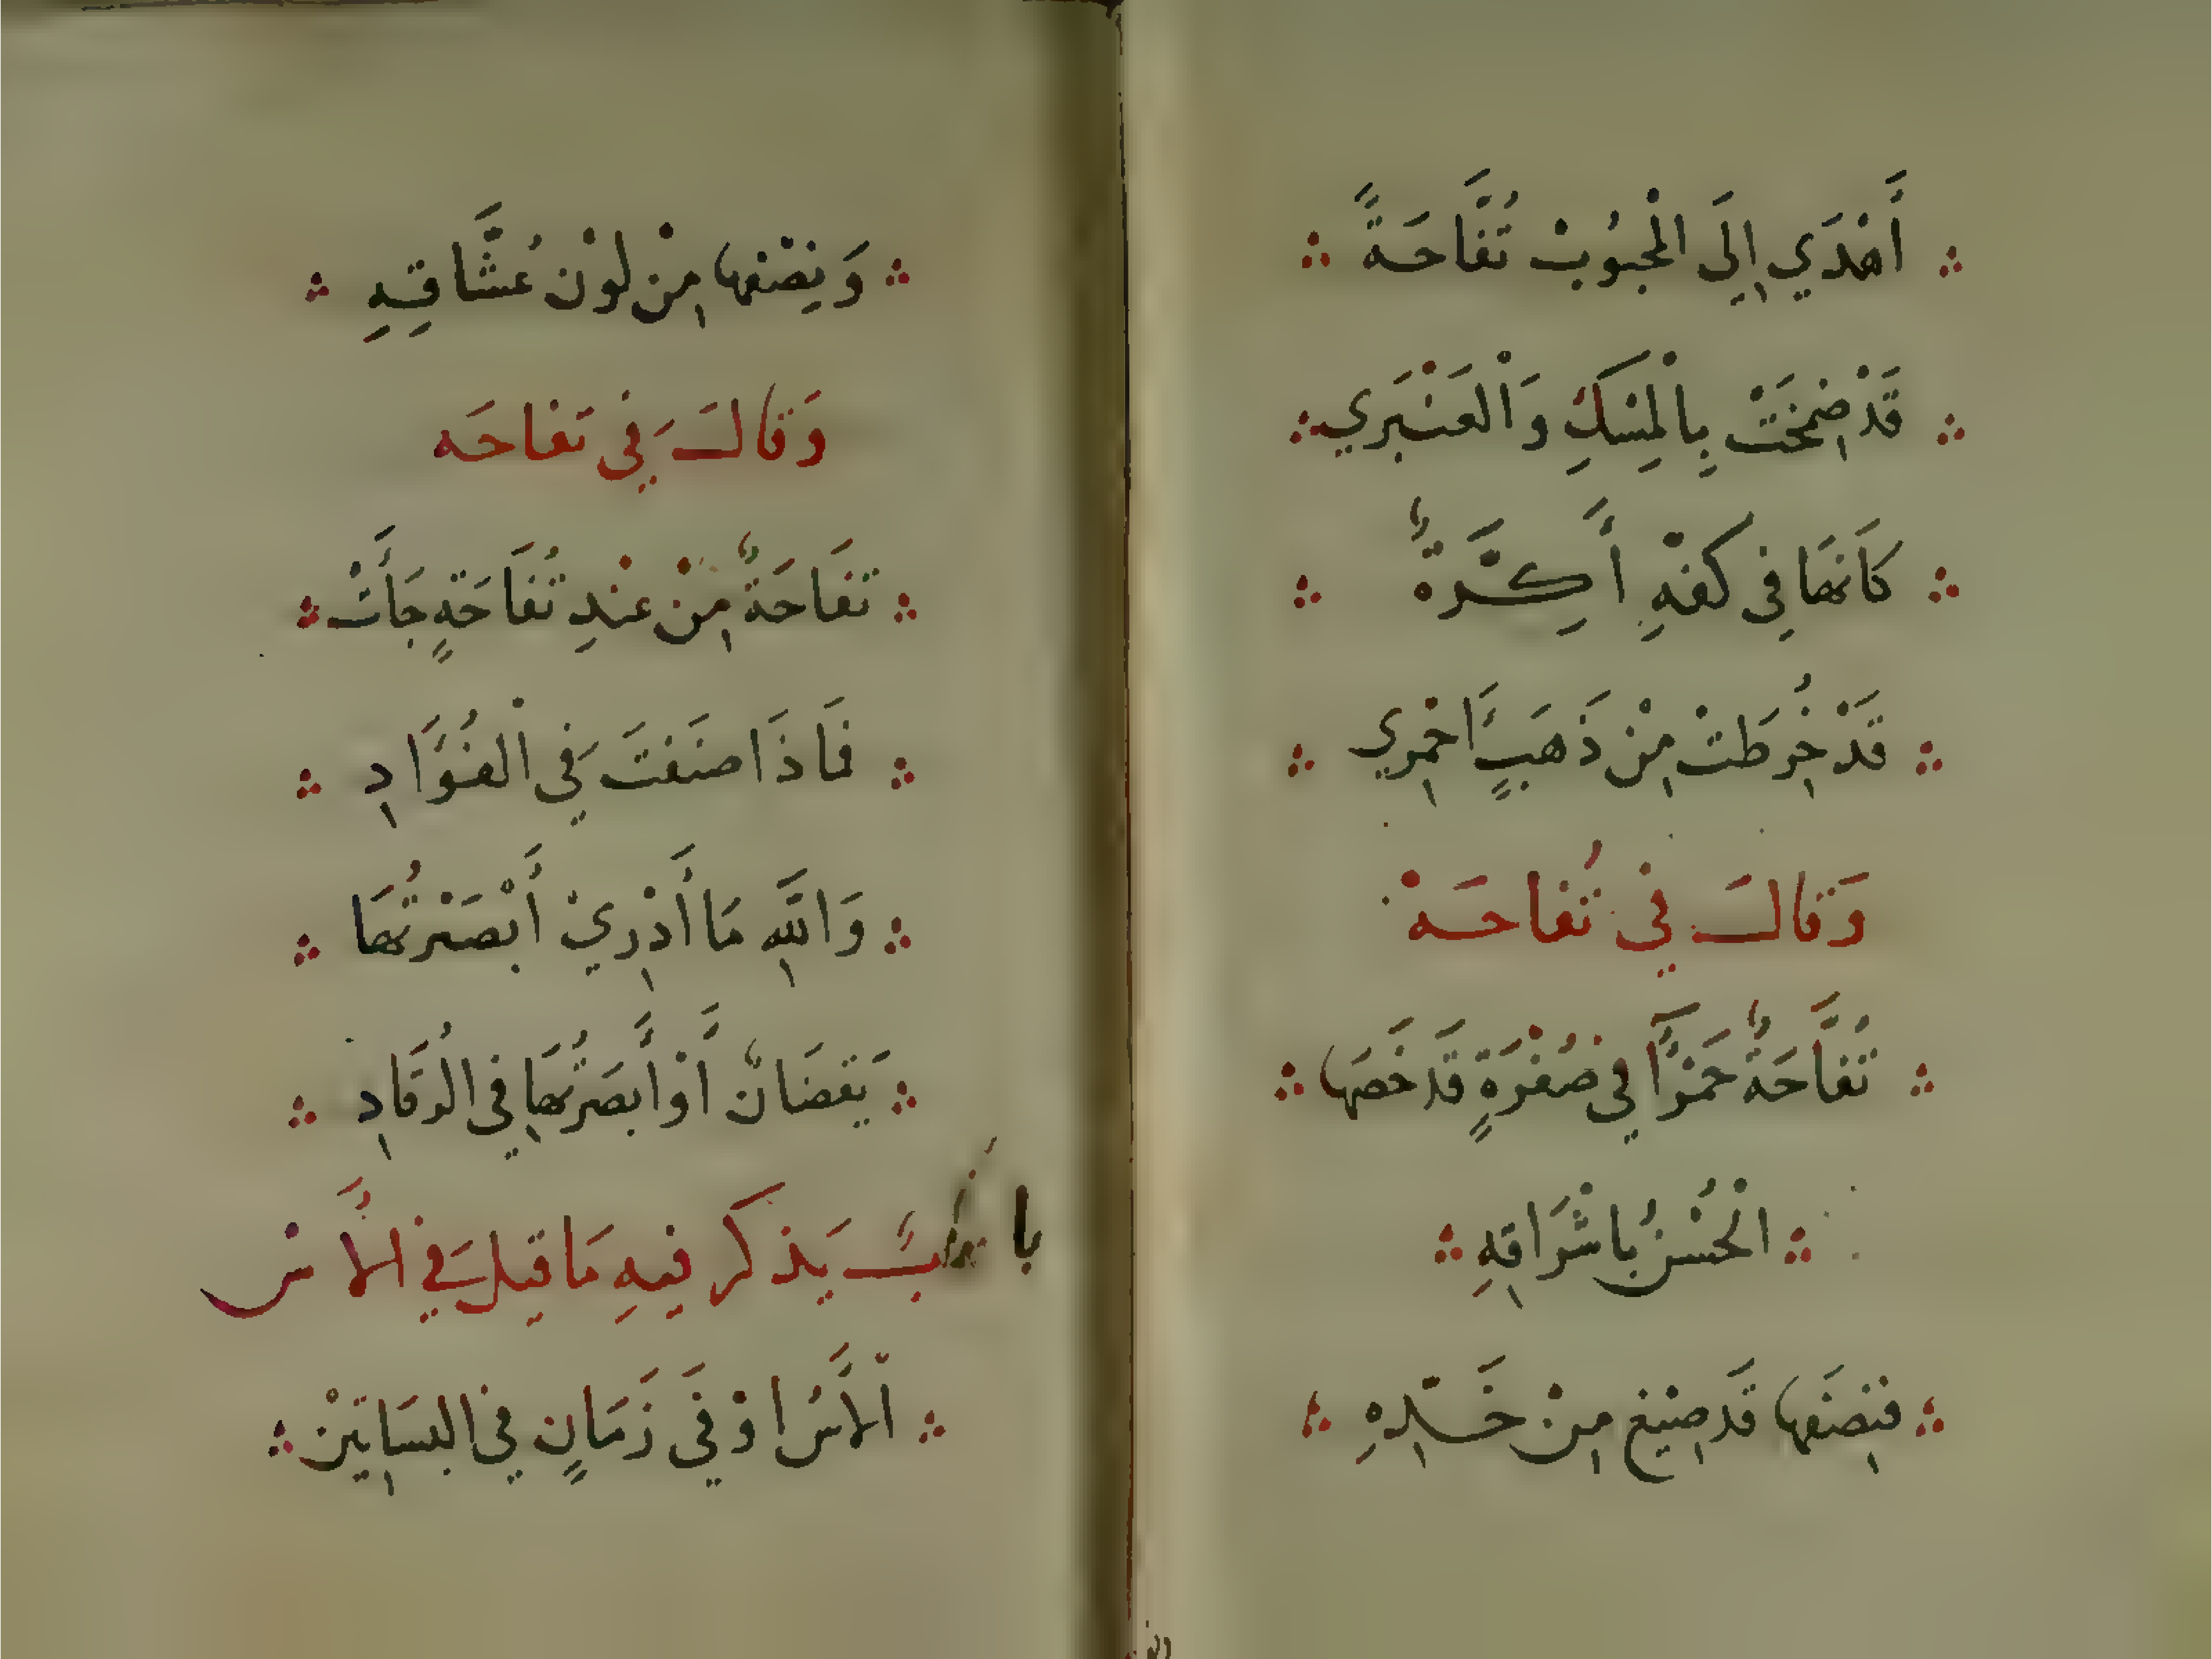 أَهْدَي إِلَى الْمَحْبُوبْ تُفَّاحَةً
قَدْ ضِمِّخَتْ بِالْمِسْكِ وَالْعَنْبَرِي
كَاَنهَا فِي كَفّهِ أَكِرَّةٌ
قَدْ خُرِطَتْ مِنْ ذَهَبٍ اَحْمِرِي
وَقَالَ فِي تُفاحَهْ
تُفَّاحَةٌ حَمْرَآ فِي صُفْرَةٍ قَدْ خَصَهَا
الْحُسْنُ بُاشْرَاقِهِ
فنِصْفَها قَد صِبْغ مِنْ خَدِّهِ
وَنِصْفها مِنْ لوْن عُشَّاقِهِ
وَقَالَ فِي تفاحَه
تفَاحَةٌ مِنْ عنْدِ تُفَاحَةٍ جَأَتْ
فَمَاذَا صنَعَتَ فِي الْفُؤَادِ
وَاللَّهِ مَا أَدْرِيْ أَبْصَرْتُهَا
يَقضَانٌ أَوْ أَبصَرْتُهَا فِي الرُقَادِ
بابٌ يَذكر فيهِ مَا قِيلَ فِي الأَسْ
اْلأَسُ اوْفَى زَمَانٍ فِي البسَاتِينْ